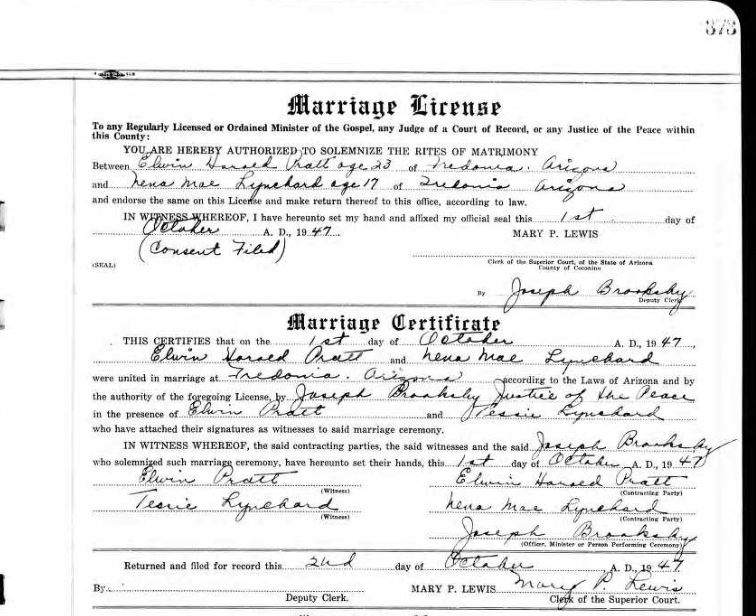 373
Marriage License
To any Regularly Licensed or Ordained Minister of the Gospel, any Judge of a Court of Record, or any Justice of the Peace within
this County:
YOU ARE HEREBY AUTHORIZED TO SOLEMNIZE THE RITES OF MATRIMONY
Between Elwin Harold Pratt age 23 of Fredonia. Arizona
and Nena Mae Lynchard age 17 of Fredonia Arizona
and endorse the same on this License and make return thereof to this office, according to law.
IN WITNESS WHEREOF, I have hereunto set my hand and affixed my official seal this 1st day of
October A. D., 1947 MARY P. LEWIS
(Consent Filed)
(SEAL) Clerk of the Superior Court, of the State of Arizona
County of Coconino
By Joseph Brooksby
Deputy Clerk
Marriage Certificate
THIS CERTIFIES that on the 1st day of October A. D., 1947,
Elwin Harold Pratt and Nena Mae Lynchard
were united in marriage at Fredonia. Arizona according to the Laws of Arizona and by
the authority of the foregoing License, by Joseph Brooksby Justice of the Peace
in the presence of Elwin Pratt and Tessie Lynchard
who have attached their signatures as witnesses to said marriage ceremony.
IN WITNESS WHEREOF, the said contracting parties, the said witnesses and the said Joseph Brooksby
who solemnized such marriage ceremony, have hereunto set their hands, this 1st day of October A. D., 1947
Elwin Pratt Elwin Harold Pratt
(Witness) (Contracting Party)
Tessie Lynchard Nena Mae Lynchard
(Witness) (Contracting Party)
Joseph Brooksby
(Officer, Minister or Person Performing Ceremony)
Returned and filed for record this 2nd day of October A. D., 1947
By MARY P. LEWIS Mary P Lewis
Deputy Clerk. Clerk of the Superior Court.